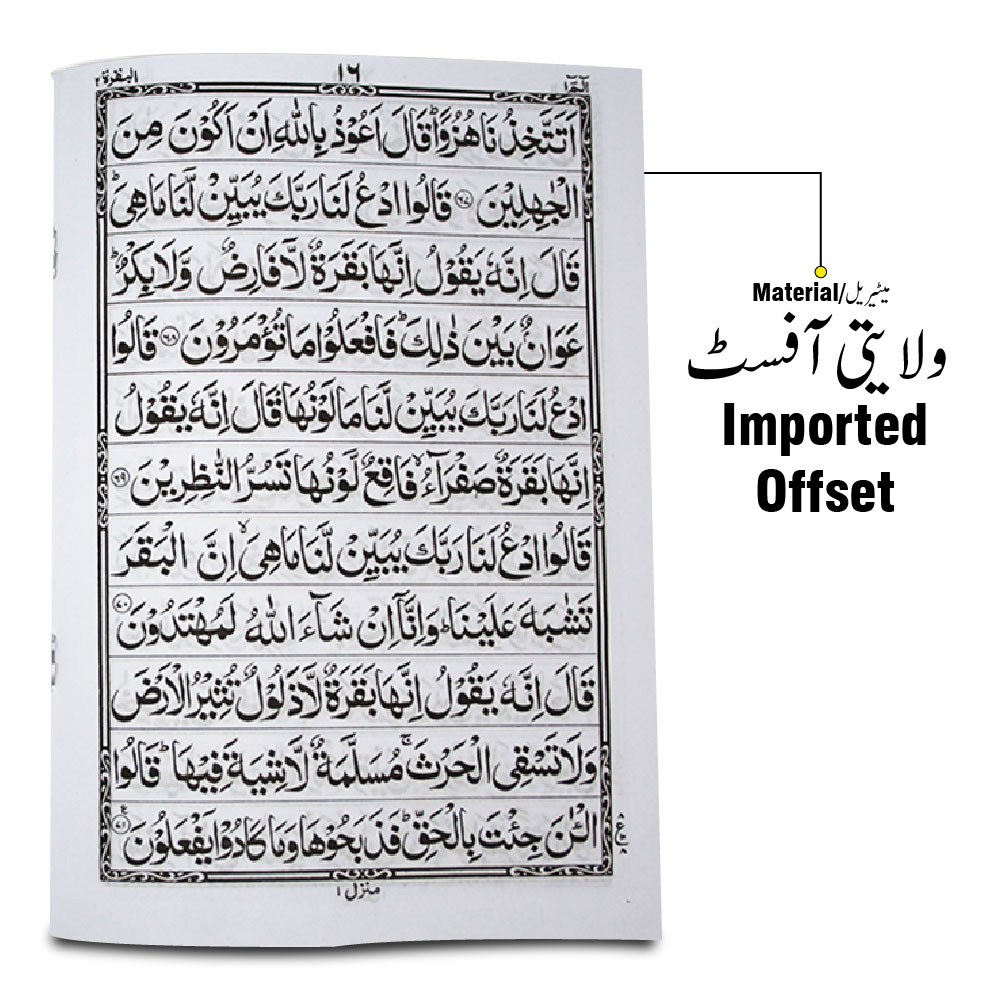 البقرة ٢
١٦
الٓمّٓ ١
اَتَتَّخِذُنَا هُزُوًا ؕ قَالَ اَعُوْذُ بِاللّٰهِ اَنْ اَكُوْنَ مِنَ
الْجٰهِلِیْنَ ۝۶۷ قَالُوا ادْعُ لَنَا رَبَّكَ یُبَیِّنْ لَّنَا مَا هِیَ ؕ
قَالَ اِنَّهٗ یَقُوْلُ اِنَّهَا بَقَرَةٌ لَّا فَارِضٌ وَّلَا بِكْرٌ ؕ
عَوَانٌۢ بَیْنَ ذٰلِكَ ؕ فَافْعَلُوْا مَا تُؤْمَرُوْنَ ۝۶۸ قَالُوا
ادْعُ لَنَا رَبَّكَ یُبَیِّنْ لَّنَا مَا لَوْنُهَا ؕ قَالَ اِنَّهٗ یَقُوْلُ
اِنَّهَا بَقَرَةٌ صَفْرَآءُ ۙ فَاقِعٌ لَّوْنُهَا تَسُرُّ النّٰظِرِیْنَ ۝۶۹
قَالُوا ادْعُ لَنَا رَبَّكَ یُبَیِّنْ لَّنَا مَا هِیَ ۙ اِنَّ الْبَقَرَ
تَشٰبَهَ عَلَیْنَا ؕ وَاِنَّاۤ اِنْ شَآءَ اللّٰهُ لَمُهْتَدُوْنَ ۝۷۰
قَالَ اِنَّهٗ یَقُوْلُ اِنَّهَا بَقَرَةٌ لَّا ذَلُوْلٌ تُثِیْرُ الْاَرْضَ
وَلَا تَسْقِی الْحَرْثَ ۚ مُسَلَّمَةٌ لَّا شِیَةَ فِیْهَا ؕ قَالُوا
الْـٰٔنَ جِئْتَ بِالْحَقِّ ؕ فَذَبَحُوْهَا وَمَا كَادُوْا یَفْعَلُوْنَ ۝۷۱
منزل ۱
Material/میٹیریل
ولایتی آفسٹ
Imported
Offset